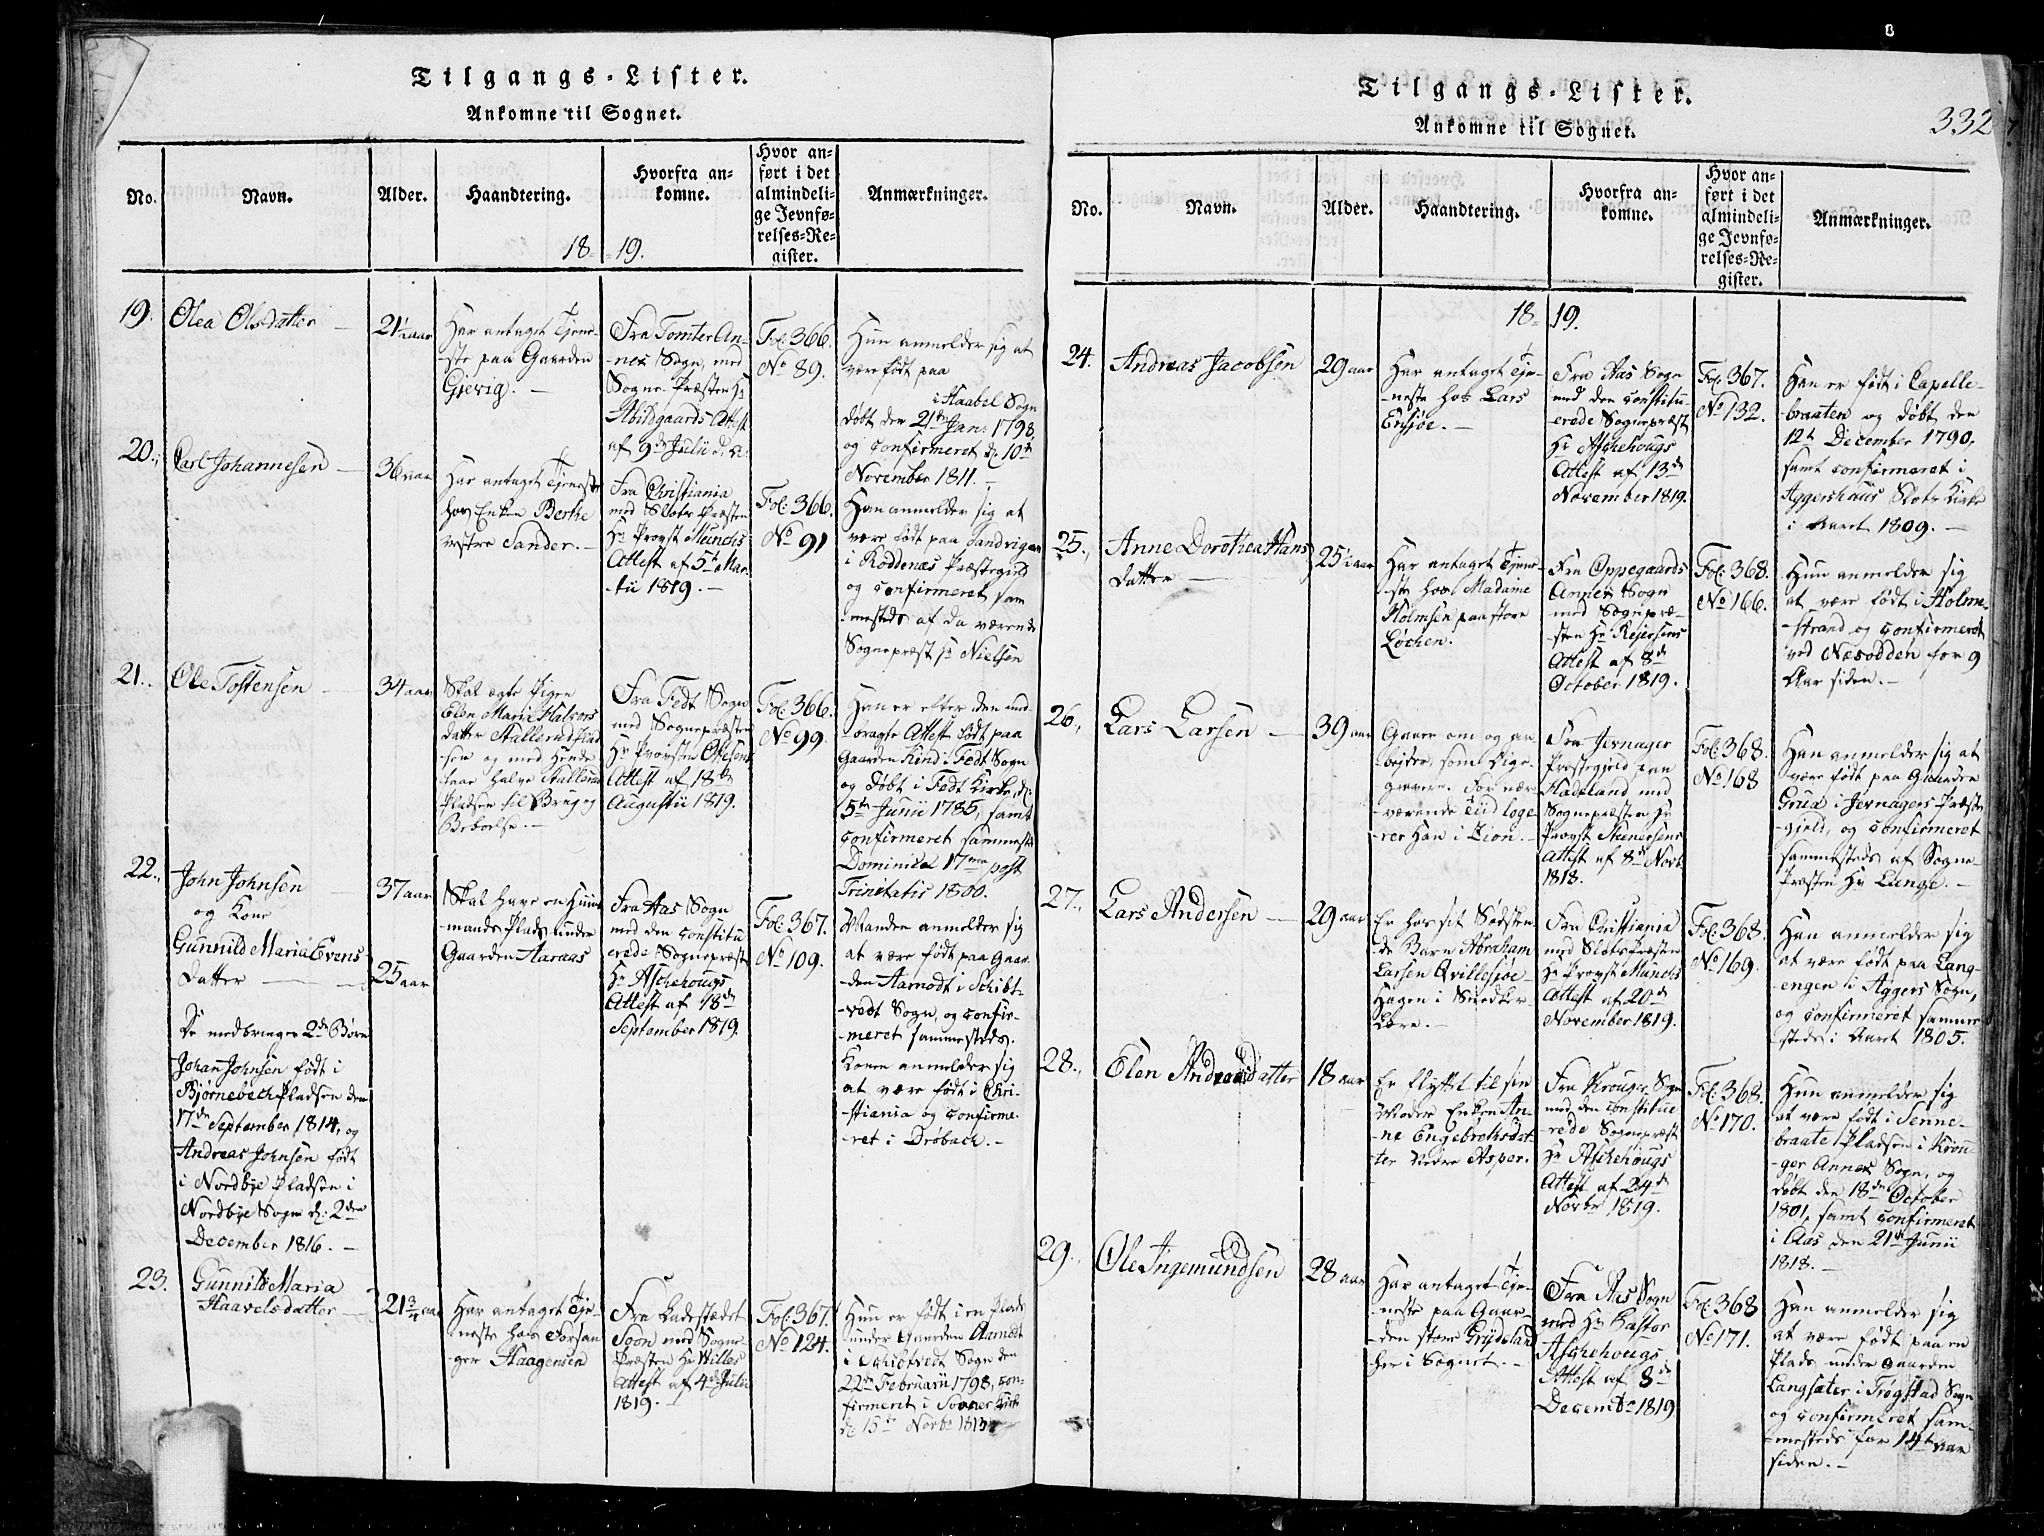 Tilgangs-Lister.
Ankomne til Sognet.
No.
Navn.
Alder.
Haandtering.
Hvorfra an-
komne.
Hvor an-
ført i det
almindeli-
ge Jevnfø-
relses-Re-
gister.
Anmærkninger.
18 - 19.
19.
Olea Olsdatter
21 1/2 aar
Har antaget Tjene-
ste paa Gaarden
Gjevig. -
Fra Tomter An-
nex Sogn, med
Sogne Præsten Hr
Abildgaards Attest
af 9de Julii d. A.
Fol: 366.
No 89.
Hun anmelder sig at
være født paa
i Haabel Sogn
døbt den 21de Jan: 1798,
og confirmeret d. 10de
November 1811. -
20.,
Carl Johannesen
36 aar
Har antaget Tjeneste
hos Enken Berthe
vestre Sander. -
Fra Christiania
med Slots Præsten
Hr Provst Munchs
Attest af 5te Mar-
tii 1819. -
Fol: 366.
No 91
Han anmelder sig at
være født paa Sandvigen
i Røddenæs Præstegield
og confirmeret sam
mesteds af da værende
Sognepræst Hr Nielsen
21.
Ole Tostensen
34 aar
Skal ægte Pigen
Elen Maria Halvors
datter
sen og med Hende
faae halve
Pladsen til Brug og
Beboelse. -
Fra Fedt Sogn
med Sognepræsten
Hr Provsten Ottesens
Attest af 18de
Augustii 1819.
Fol: 366.
No 99.
Han er efter den med
bragte Attest født paa
Gaarden Kind i Fedt Sogn
og døbt i Fedt Kirke, d:
5te Junii 1785, samt
confirmeret sammesteds
Dominica 17ma post
Trinitatis 1800.
22.,
John Johnsen
og Kone
Gunnild Maria Evens
Datter
37 aar
25 aar
De medbringer 2de Børn
Johan Johnsen født i
Bjørnebech Pladsen den
17de September 1814, og
Andreas Johnsen født
i Nordbye Pladsen i
Nordbye Sogn d: 2den
December 1816. -
Skal have en Huus
mands Plads under
Gaarden Aaraas
Fra Aas Sogn
med den constitu
erede Sognepræst
Hr Aschehougs
Attest af 18de
September 1819.
Fol: 367.
No 109.
Manden anmelder sig
at være født paa Gaar-
den Aamodt i Schibt-
vedt Sogn, og confir-
meret sammesteds.
Konen anmelder sig
at være født i Chri-
stiania og confirme-
ret i Drøbach. -
23.
Gunnild Maria
Haavelsdatter
21 3/4 aar
Har antaget Tje-
neste hos Forsan
ger Haagensen
Fra Ladestædet
Soon med Sogne-
Præsten Hr Willes
Attest af 4de Julii
1819. -
Fol: 367.
No 124.
Hun er født i en Plads
under Gaarden Aamodt
i Schibtvedt Sogn den
22de Februarii 1798, con-
firmeret i Sooner Kirke
d. 15de Novbr 1813
Tilgangs-Lister.
Ankomne til Sognet.
332
No.
Navn.
Alder.
Haandtering.
Hvorfra an-
komne.
Hvor an-
ført i det
almindeli-
ge Jevnfø-
relses-Re-
gister.
Anmærkninger.
18 - 19.
24.
Andreas Jacobsen
29 aar
Har antaget Tje-
neste hos Lars
Ensjøe. -
Fra Aas Sogn
med den constitu-
erede Sognepræst
Hr Aschehougs
Attest af 13de
November 1819.
Fol: 367.
No 132.
Han er født i Capelle-
braaten og døbt den
12te December 1790,
samt confirmeret i
Aggershuus Slots Kirke
i Aaret 1809. -
25.,
Anne Dorothea Hans
datter
25 1/2 aar
Har antaget Tjene-
ste hos Madame
Holmsen paa store
Løchen.
Fra Oppegaards
Annex Sogn
med Sognepræ-
sten Hr Rejersens
Attest af 8de
October 1819.
Fol: 368.
No 166.
Hun anmelder sig
at være født i Holme-
strand og confirmeret
ved Næsodden for 9
Aar siden. -
26.,
Lars Larsen
39 aar
Gaaer om og ar
bejder, som Dige-
graver. For nær-
værende Tiid loge-
rer Han i Zion. -
Fra Jevnager
Præstegjeld paa
Hadeland med
Sognepræsten Hr
Provst Steenersens
Attest af 8de Novbr
1818.
Fol: 368.
No 168
Han anmelder sig at
være født paa Gaarden
Grua i Jevnagers Præste
gjeld, og confirmeret
sammesteds af Sogne-
Præsten Hr Lunge. -
27.,
Lars Andersen
29 aar
Er hos sit Sødsken
de Barn Abraham
Larsen Qvillesjøe-
Hagen i Smedker
Lære. -
Fra Christiania
med Slots Præsten
Hr Provst Munchs
Attest af 20de
November 1819.
Fol: 368.
No 169.
Han anmelder sig
at være født paa Lang-
engen i Aggers Sogn,
og confirmeret samme
steds i Aaret 1805.
28.,
Elen Andreasdatter
18 aar
Er flyttet til sin
Moder Enken An-
ne Engebrethsdat-
ter Nedre Asper.
Fra Krouger Sogn
med den constitue
rede Sognepræst
Hr Aschehougs
Attest af 24de
Novbr 1819.
Fol: 368.
No 170.
Hun anmelder sig
at være født i Senne-
braate Pladsen i Krou-
ger Annex Sogn, og
døbt den 18de October
1801, samt confirmeret
i Aas den 21de Junii
1818. -
29.,
Ole Ingemundsen
28 aar
Har antaget Tje-
neste paa Gaar-
den store Grydeland
her i Sognet. -
Fra Aas Sogn
med Hr Pastor
Aschehougs
Attest af 8de
Decembr 1819
Fol: 368
No 171.
Han anmelder sig
at være født paa en
Plads under Gaarden
Langsæter i Trøgstad Sogn
og confirmeret sam-
mesteds for 14 Aar
siden. -